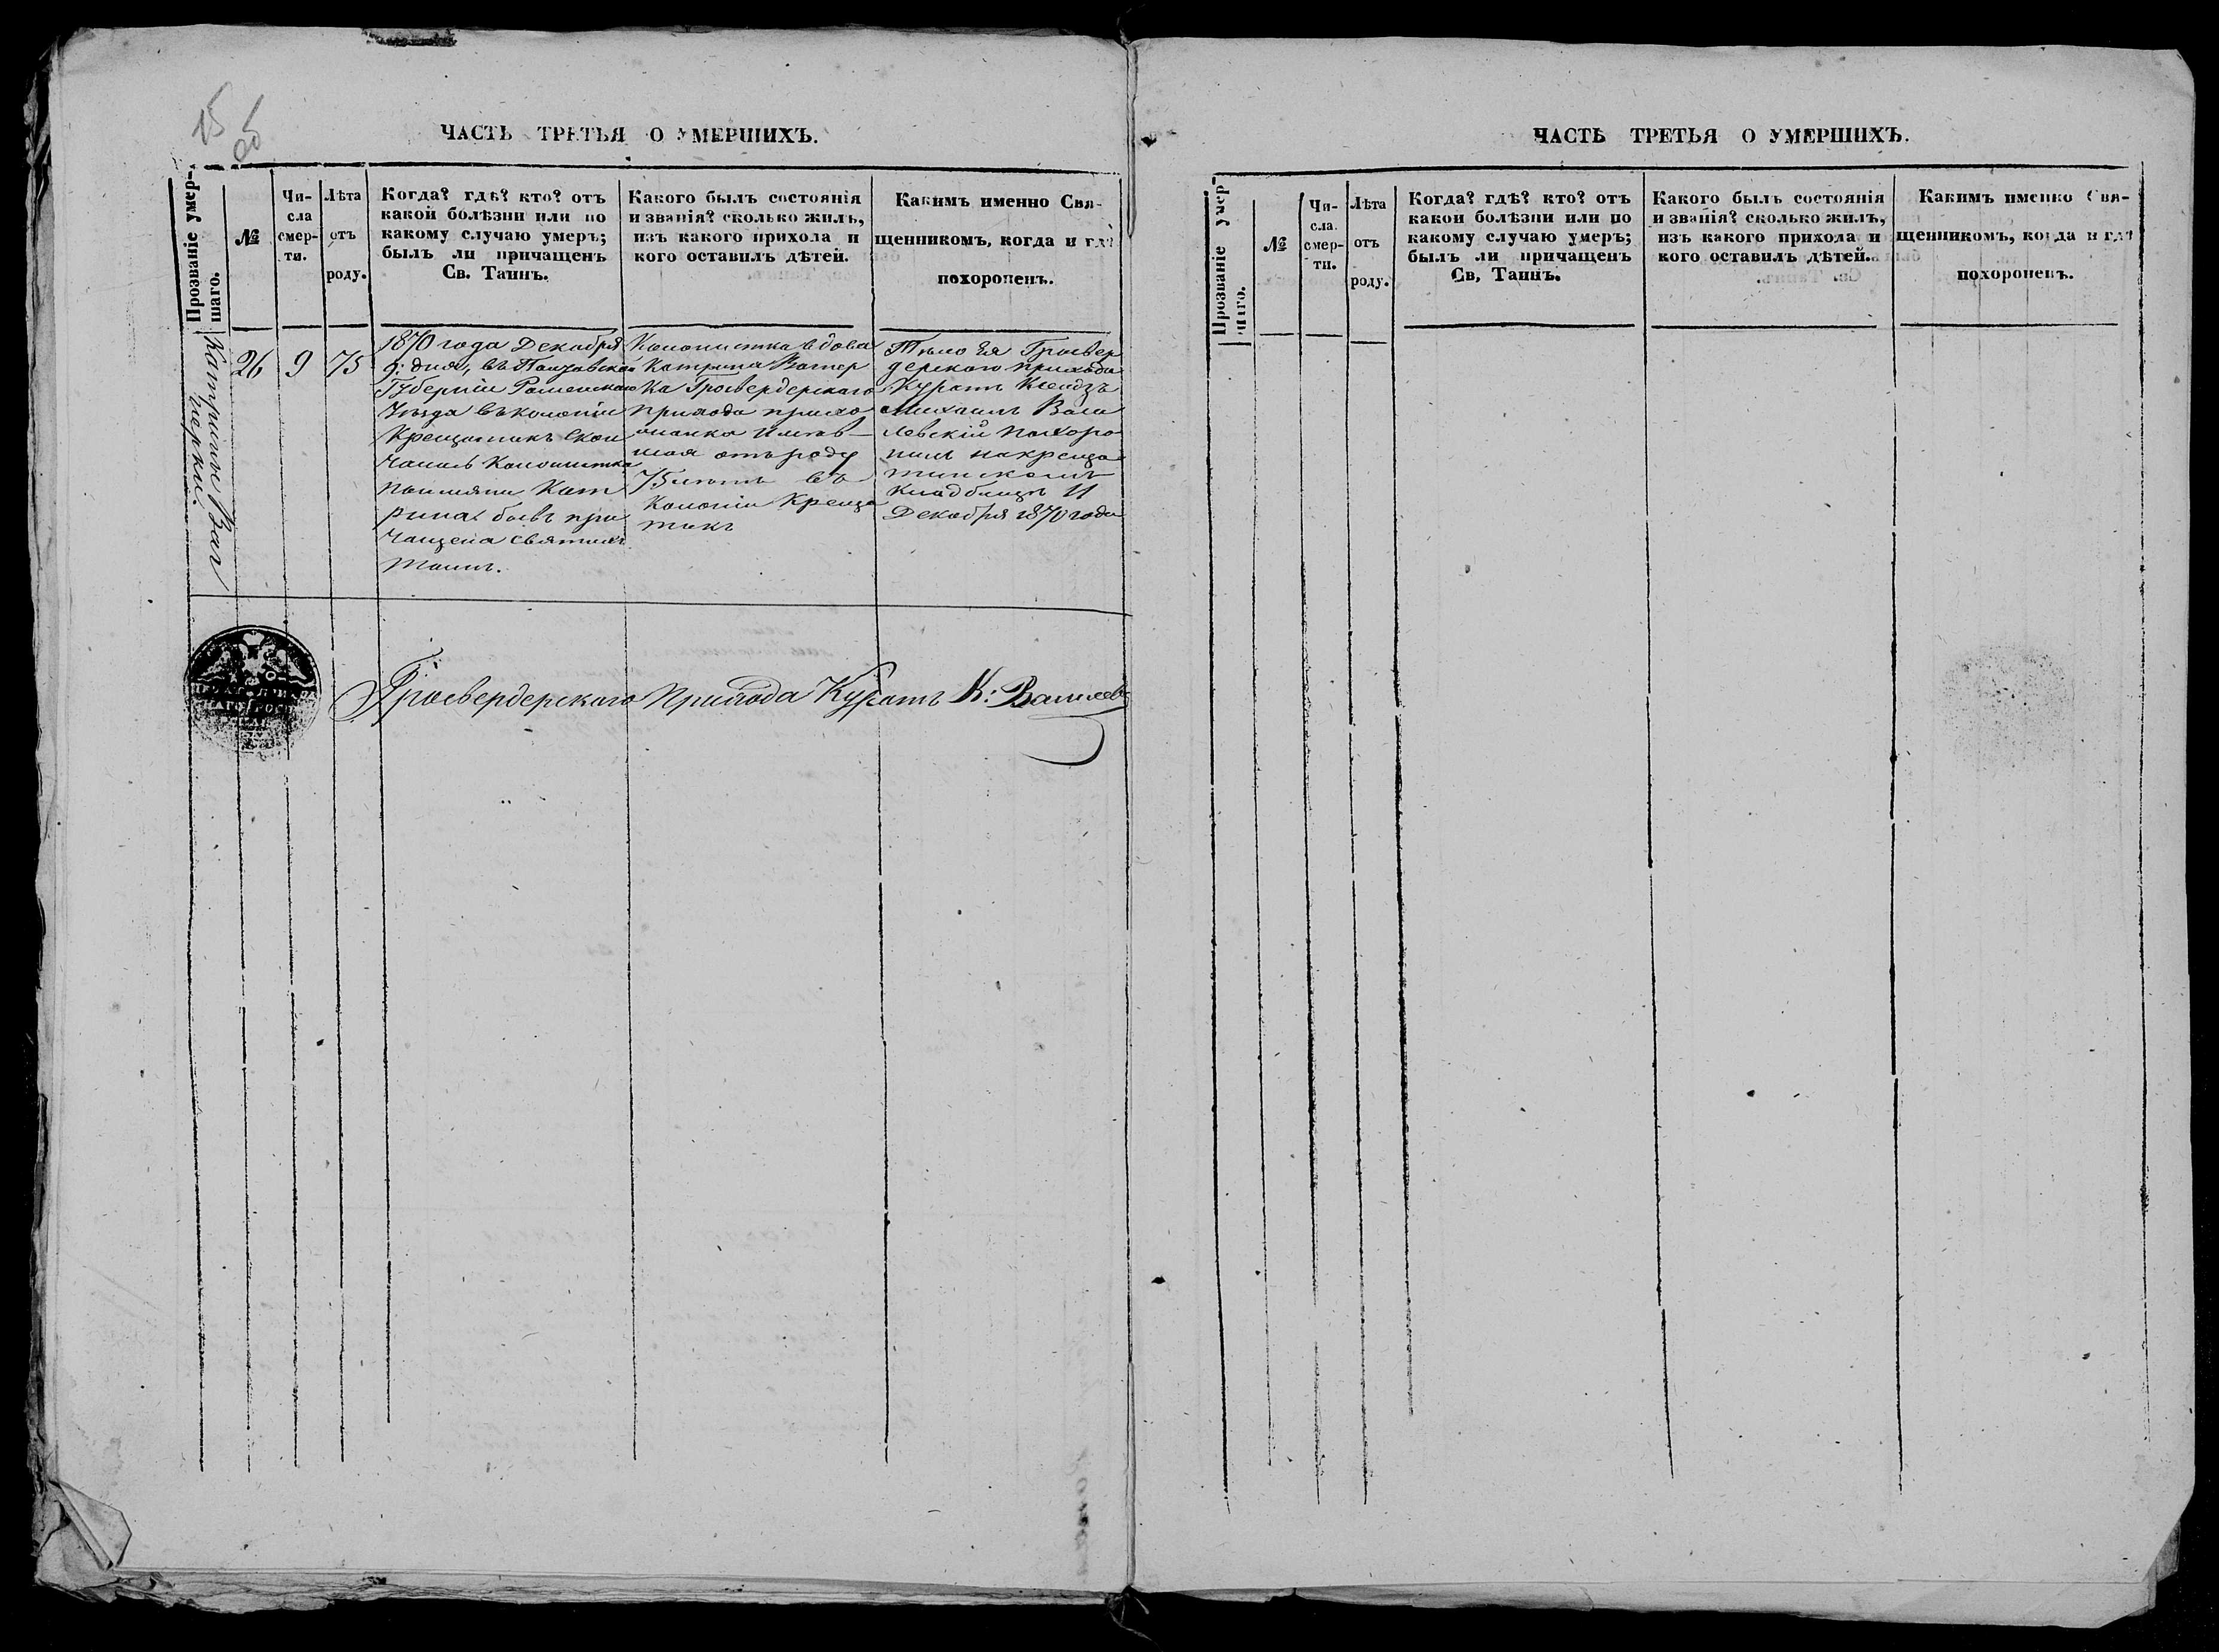 15
об
ЧАСТЬ ТРЕТЬЯ О УМЕРШИХЪ.
Прозваніе умер-
шаго.
№
Чи-
сла
смер-
ти.
Лѣта
отъ
роду.
Когда? гдѣ? кто? отъ
какой болѣзни или по
какому случаю умеръ;
былъ ли причащенъ
Св. Таинъ.
Какого былъ состоянія
и званія? сколько жилъ,
изъ какого прихода и
кого оставилъ дѣтей.
Какимъ именно Свя-
щенникомъ, когда и гдѣ
похороненъ.
Катрины Ваг
нерки.
26
9
75
1870 года Декабря
9: дня, въ Полтавской
Губерніи Роменскаго
Уѣзда въ колоніи
Крещатикъ скон
чалась Колонистка
Катрина бывъ при
чащена Святыхъ
Таинъ.
Колонистка вдова
Катрина Вагнер
ка Гросвердерскаго
прихода прихо
жанка имѣв-
шая отъ роду
75 лѣтъ въ
Колоніи Креща
тикъ
Тѣло Ея Гросвер
дерскаго прихода
Куратъ Ксендзъ
Михаилъ Васи
левскій похоро
нилъ на Креща
тинскомъ
Кладбищѣ 11
Декабря 1870 года
Гросвердерскаго Прихода Куратъ К: Василев
ЧАСТЬ ТРЕТЬЯ О УМЕРШИХЪ.
Прозваніе умер-
шаго.
№
Чи-
сла
смер-
ти.
Лѣта
отъ
роду.
Когда? гдѣ? кто? отъ
какой болѣзни или по
какому случаю умеръ;
былъ ли причащенъ
Св. Таинъ.
Какого былъ состоянія
и званія? сколько жилъ,
изъ какого прихода и
кого оставилъ дѣтей.
Какимъ именно Свя-
щенникомъ, когда и гдѣ
похороненъ.